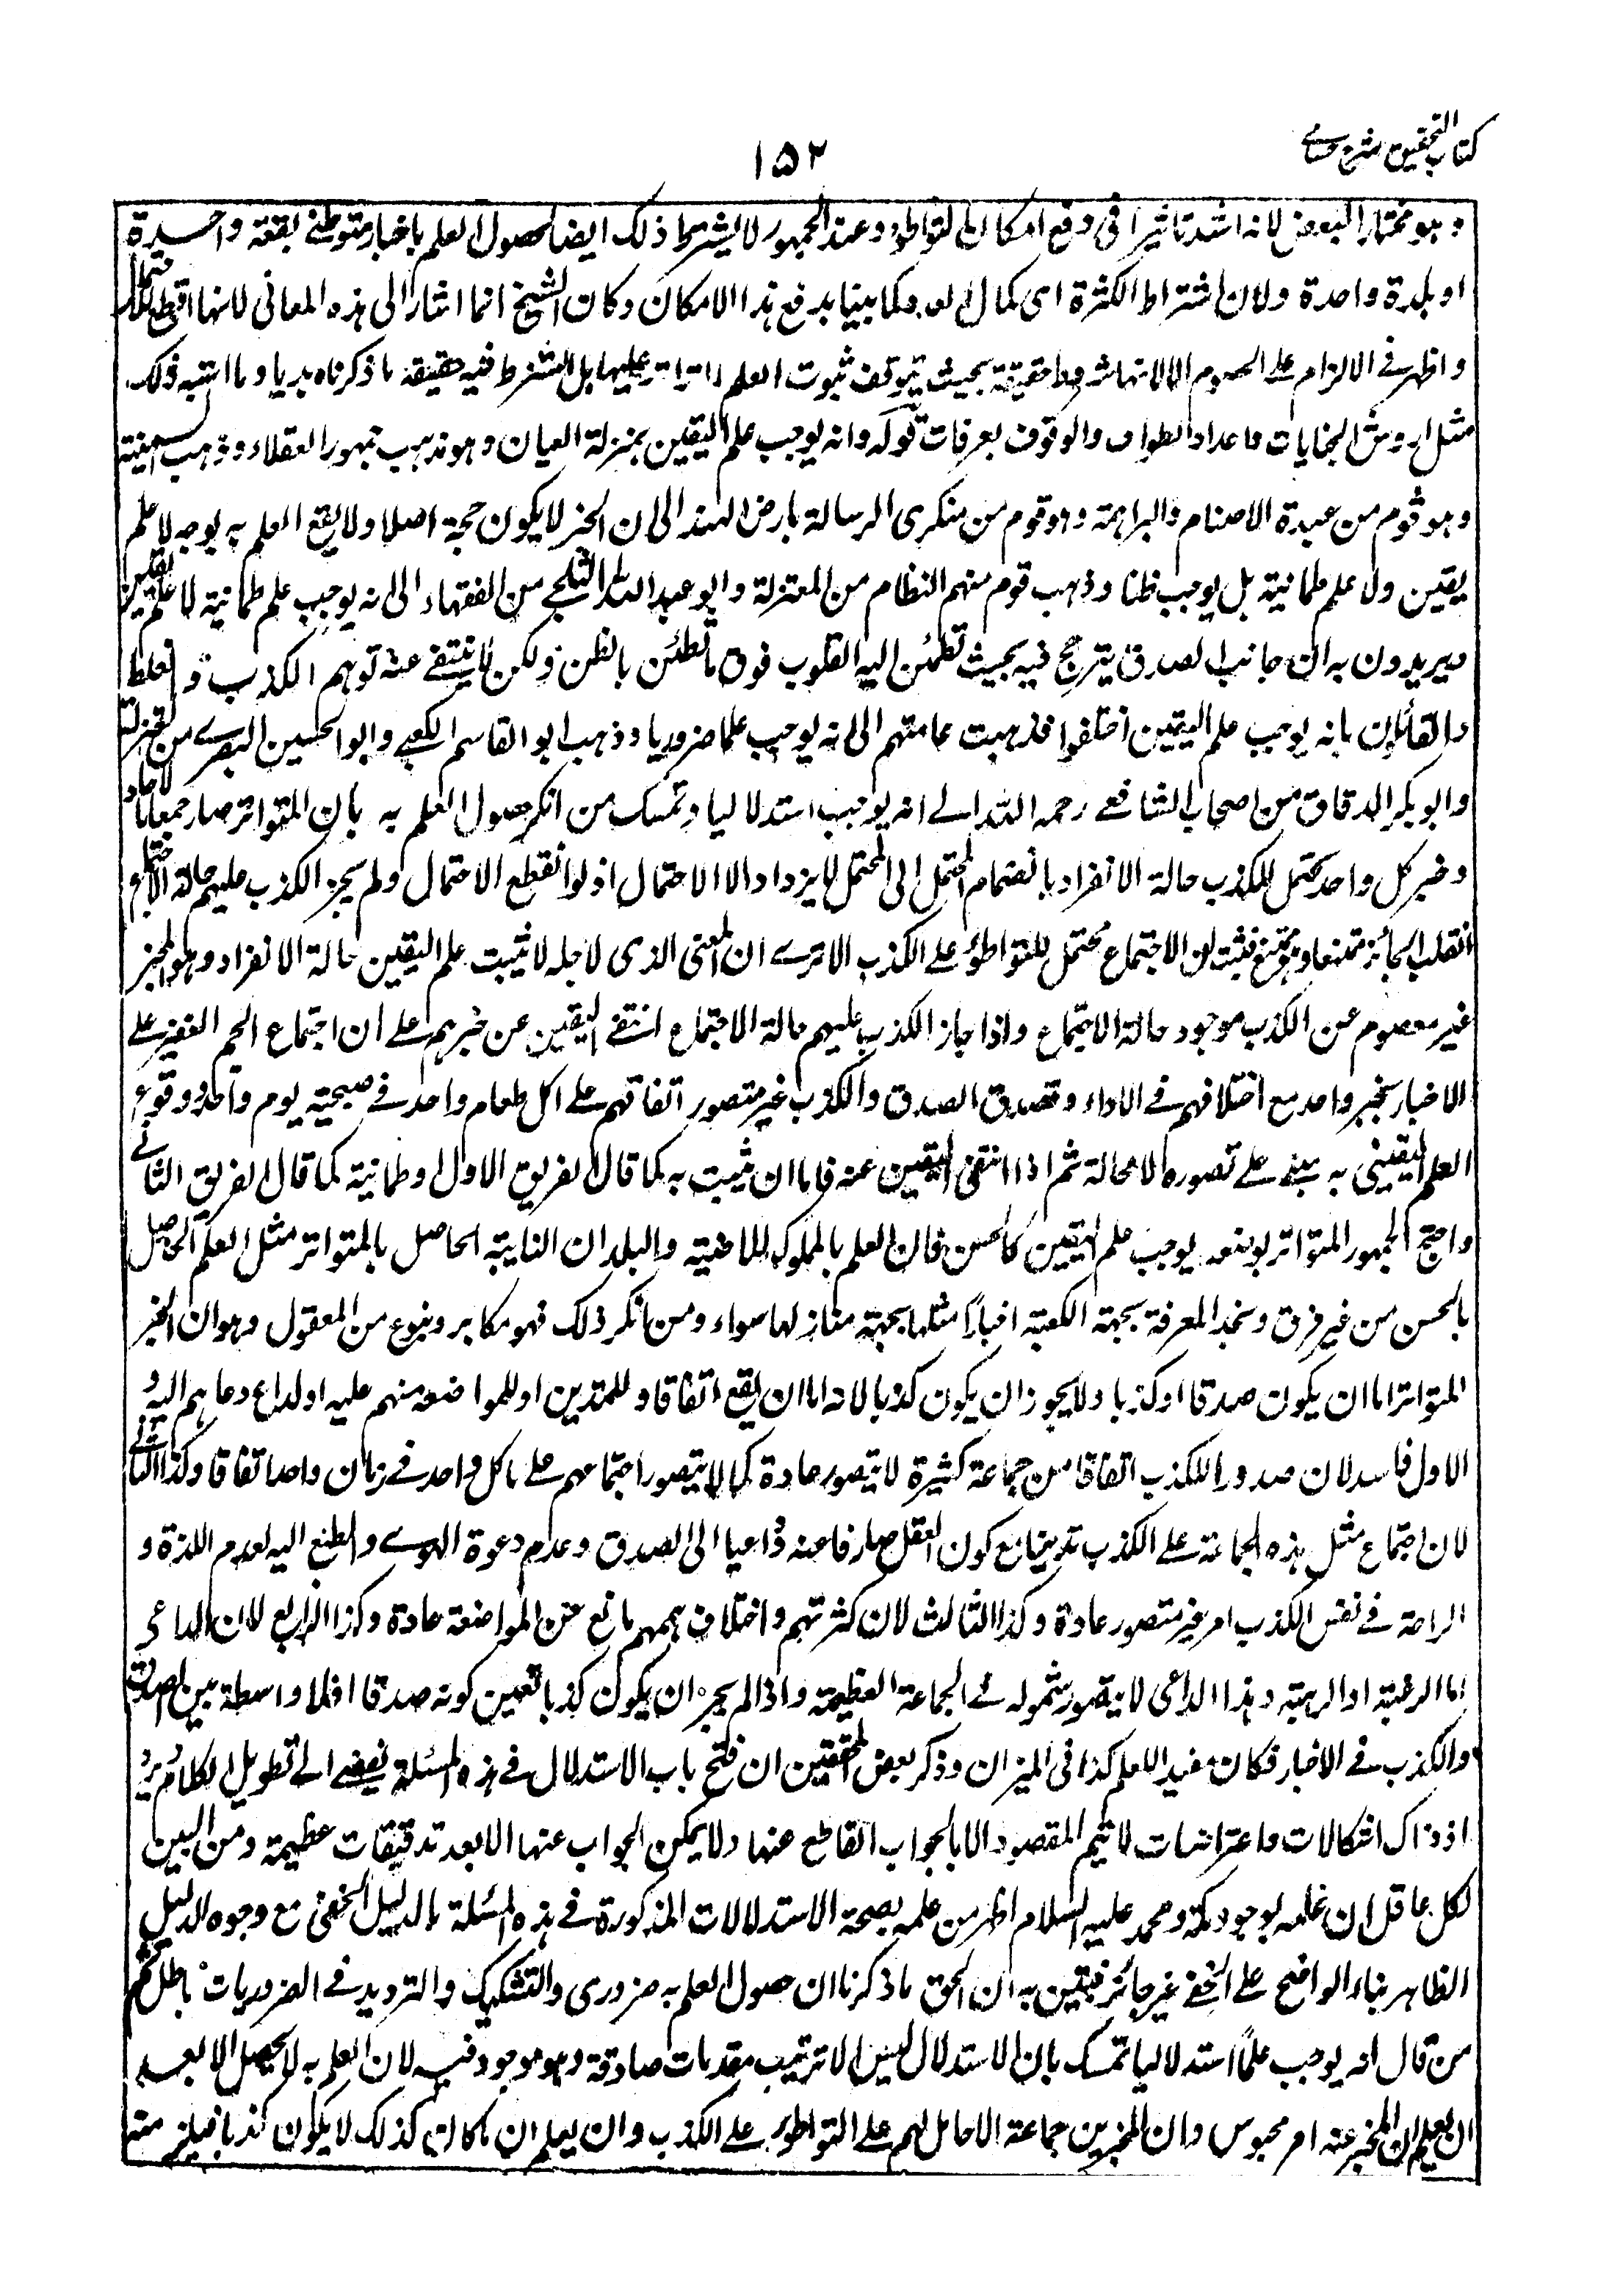 كتاب التحقيق شرح حسامے
١٥٢
وهو مختار البعض لانه اشد تاثيرا فى دفع امكان التواطؤ وعند الجمهور لا يشترط ذلك ايضا لحصول العلم باخبار متوطنے بقعة واحدة
او بلدة واحدة ولان اشتراط الكثرة الى كمال العدد كما بينا يدفع هذا الامكان وكان الشيخ انما اشار الى هذه المعانى لانها اقطع للاحتمال
واظهر فے الالزام علے الخصوم لا لانها شروط حقيقة بحيث يتوقف ثبوت العلم عليها بل الشرط فيه حقيقة ما ذكرناه بديا وما اشبه ذلك
مثل اروش الجنايات واعداد الطواف والوقوف بعرفات قوله وانه يوجب علم اليقين بمنزلة العيان وهو مذهب جمهور العقلاء وذهب السمنية
وهو قوم من عبدة الاصنام والبراهمة وهو قوم من منكرى الرسالة بارض الهند الى ان الخبر لا يكون حجة اصلا ولا يقع العلم به بوجه لا علم
يقين ولا علم طمانية بل يوجب ظنا وذهب قوم منهم النظام من المعتزلة وابو عبد الله الثلجے من الفقهاء الى انه يوجب علم طمانية لا علم يقين
ويريدون به ان جانب الصدق يترجح فيه بحيث تطمئن اليه القلوب فوق ما تطمئن بالظن ولكن لا ينتفے عنه توهم الكذب والغلط
والقائلون بانه يوجب علم اليقين اختلفوا فذهبت عامتهم الى انه يوجب علما ضروريا وذهب ابو القاسم الكعبے وابو الحسين البصرے من المعتزلة
وابو بكر الدقاق من اصحاب الشافعے رحمه الله الے انه يوجب استدلاليا وتمسك من انكر حصول العلم به بان المتواتر صار جمعا بالآحاد
وخبر كل واحد محتمل للكذب حالة الانفراد بانضمام المحتمل الى المحتمل لا يزداد الا الاحتمال اذ لو انقطع الاحتمال ولم يجز الكذب عليهم حالة الاجتماع
انقلب الجائز ممتنعا وهو ممتنع فثبت ان الاجتماع محتمل للتواطؤ علے الكذب الا ترے ان المعنى الذى لاجله لا يثبت علم اليقين حالة الانفراد وهو المخبر
غير معصوم عن الكذب موجود حالة الاجتماع واذا جاز الكذب عليهم حالة الاجتماع انتفے اليقين عن خبرهم علے ان اجتماع الجم الغفير علے
الاخبار بخبر واحد مع اختلافهم فے الاداء وقصدى الصدق والكذب غير متصور اتفاقهم علے اكل طعام واحد فے صبيحة يوم واحد ووقوع
العلم اليقينى به يبنے علے تصوره لا محالة ثم اذا انتفى اليقين عنه فاما ان يثبت به كما قال الفريق الاول او طمانية كما قال الفريق الثانے
واحتج الجمهور المتواتر بوضعه يوجب علم اليقين كالحس فان العلم بالملوك الماضية والبلدان النايبة الحاصل بالمتواتر مثل العلم الحاصل
بالحس من غير فرق ونجد المعرفة بجهة الكعبة اخبارًا مثلها بجهة منازلها سواء ومن انكر ذلك فهو مكابر وبنوع من المعقول وهو ان الخبر
المتواتر اما ان يكون صدقا او كذبا ولا يجوز ان يكون كذبا لانه اما ان يقع اتفاقا او للتدين او للمواضعة منهم عليه او لداع دعاهم اليه و
الاول فاسد لان صدور الكذب اتفاقا من جماعة كثيرة لا يتصور عادة كما لا يتصور اجتماعهم علے ماكل واحد فے زمان واحد اتفاقا وكذا الثانے
لان اجتماع مثل هذه الجماعة علے الكذب تدينا مع كون العقل صارفا عنه داعيا الى الصدق وعدم دعوة الهوے والطبع اليه لعدم اللذة و
الراحة فے نفس الكذب امر غير متصور عادة وكذا الثالث لان كثرتهم واختلاف هممهم مانع عن المواضعة عادة وكذا الرابع لان الداعى
اما الرغبة او الرهبة وهذا الداعى لا يتصور شموله فے الجماعة العظيمة واذا لم يجز ان يكون كذبا تعين كونه صدقا اذ لا واسطة بين الصدق
والكذب فے الاخبار فكان مفيدا للعلم كذا فى الميزان وذكر بعض المحققين ان فتح باب الاستدلال فے هذه المسئلة يفضے الے تطويل الكلام
اذ ذاك اشكالات واعتراضات لا يتم المقصود الا بالجواب القاطع عنها ولا يمكن الجواب عنها الا بعد تدقيقات عظيمة ومن البين
لكل عاقل ان علمه بوجود مكة ومحمد عليه السلام اظهر من علمه بصحة الاستدلالات المذكورة فے هذه المسئلة بالدليل الخفى مع وجود الدليل
الظاهر بناء الواضح علے الخفے غير جائز فتبين به ان الحق ما ذكرنا ان حصول العلم به ضرورى والتشكيك والترديد فے الضروريات باطل
من قال انه يوجب علمًا استدلاليا تمسك بان الاستدلال ليس الا ترتيب مقدمات صادقة وهو موجود فيه لان العلم به لا يحصل الا بعد
ان يعلم ان المخبر عنه امر محبوس وان المخبرين جماعة لا حامل لهم علے التواطؤ علے الكذب وان يعلم ان ما كان كذلك لا يكون كذبا فيلزم منه